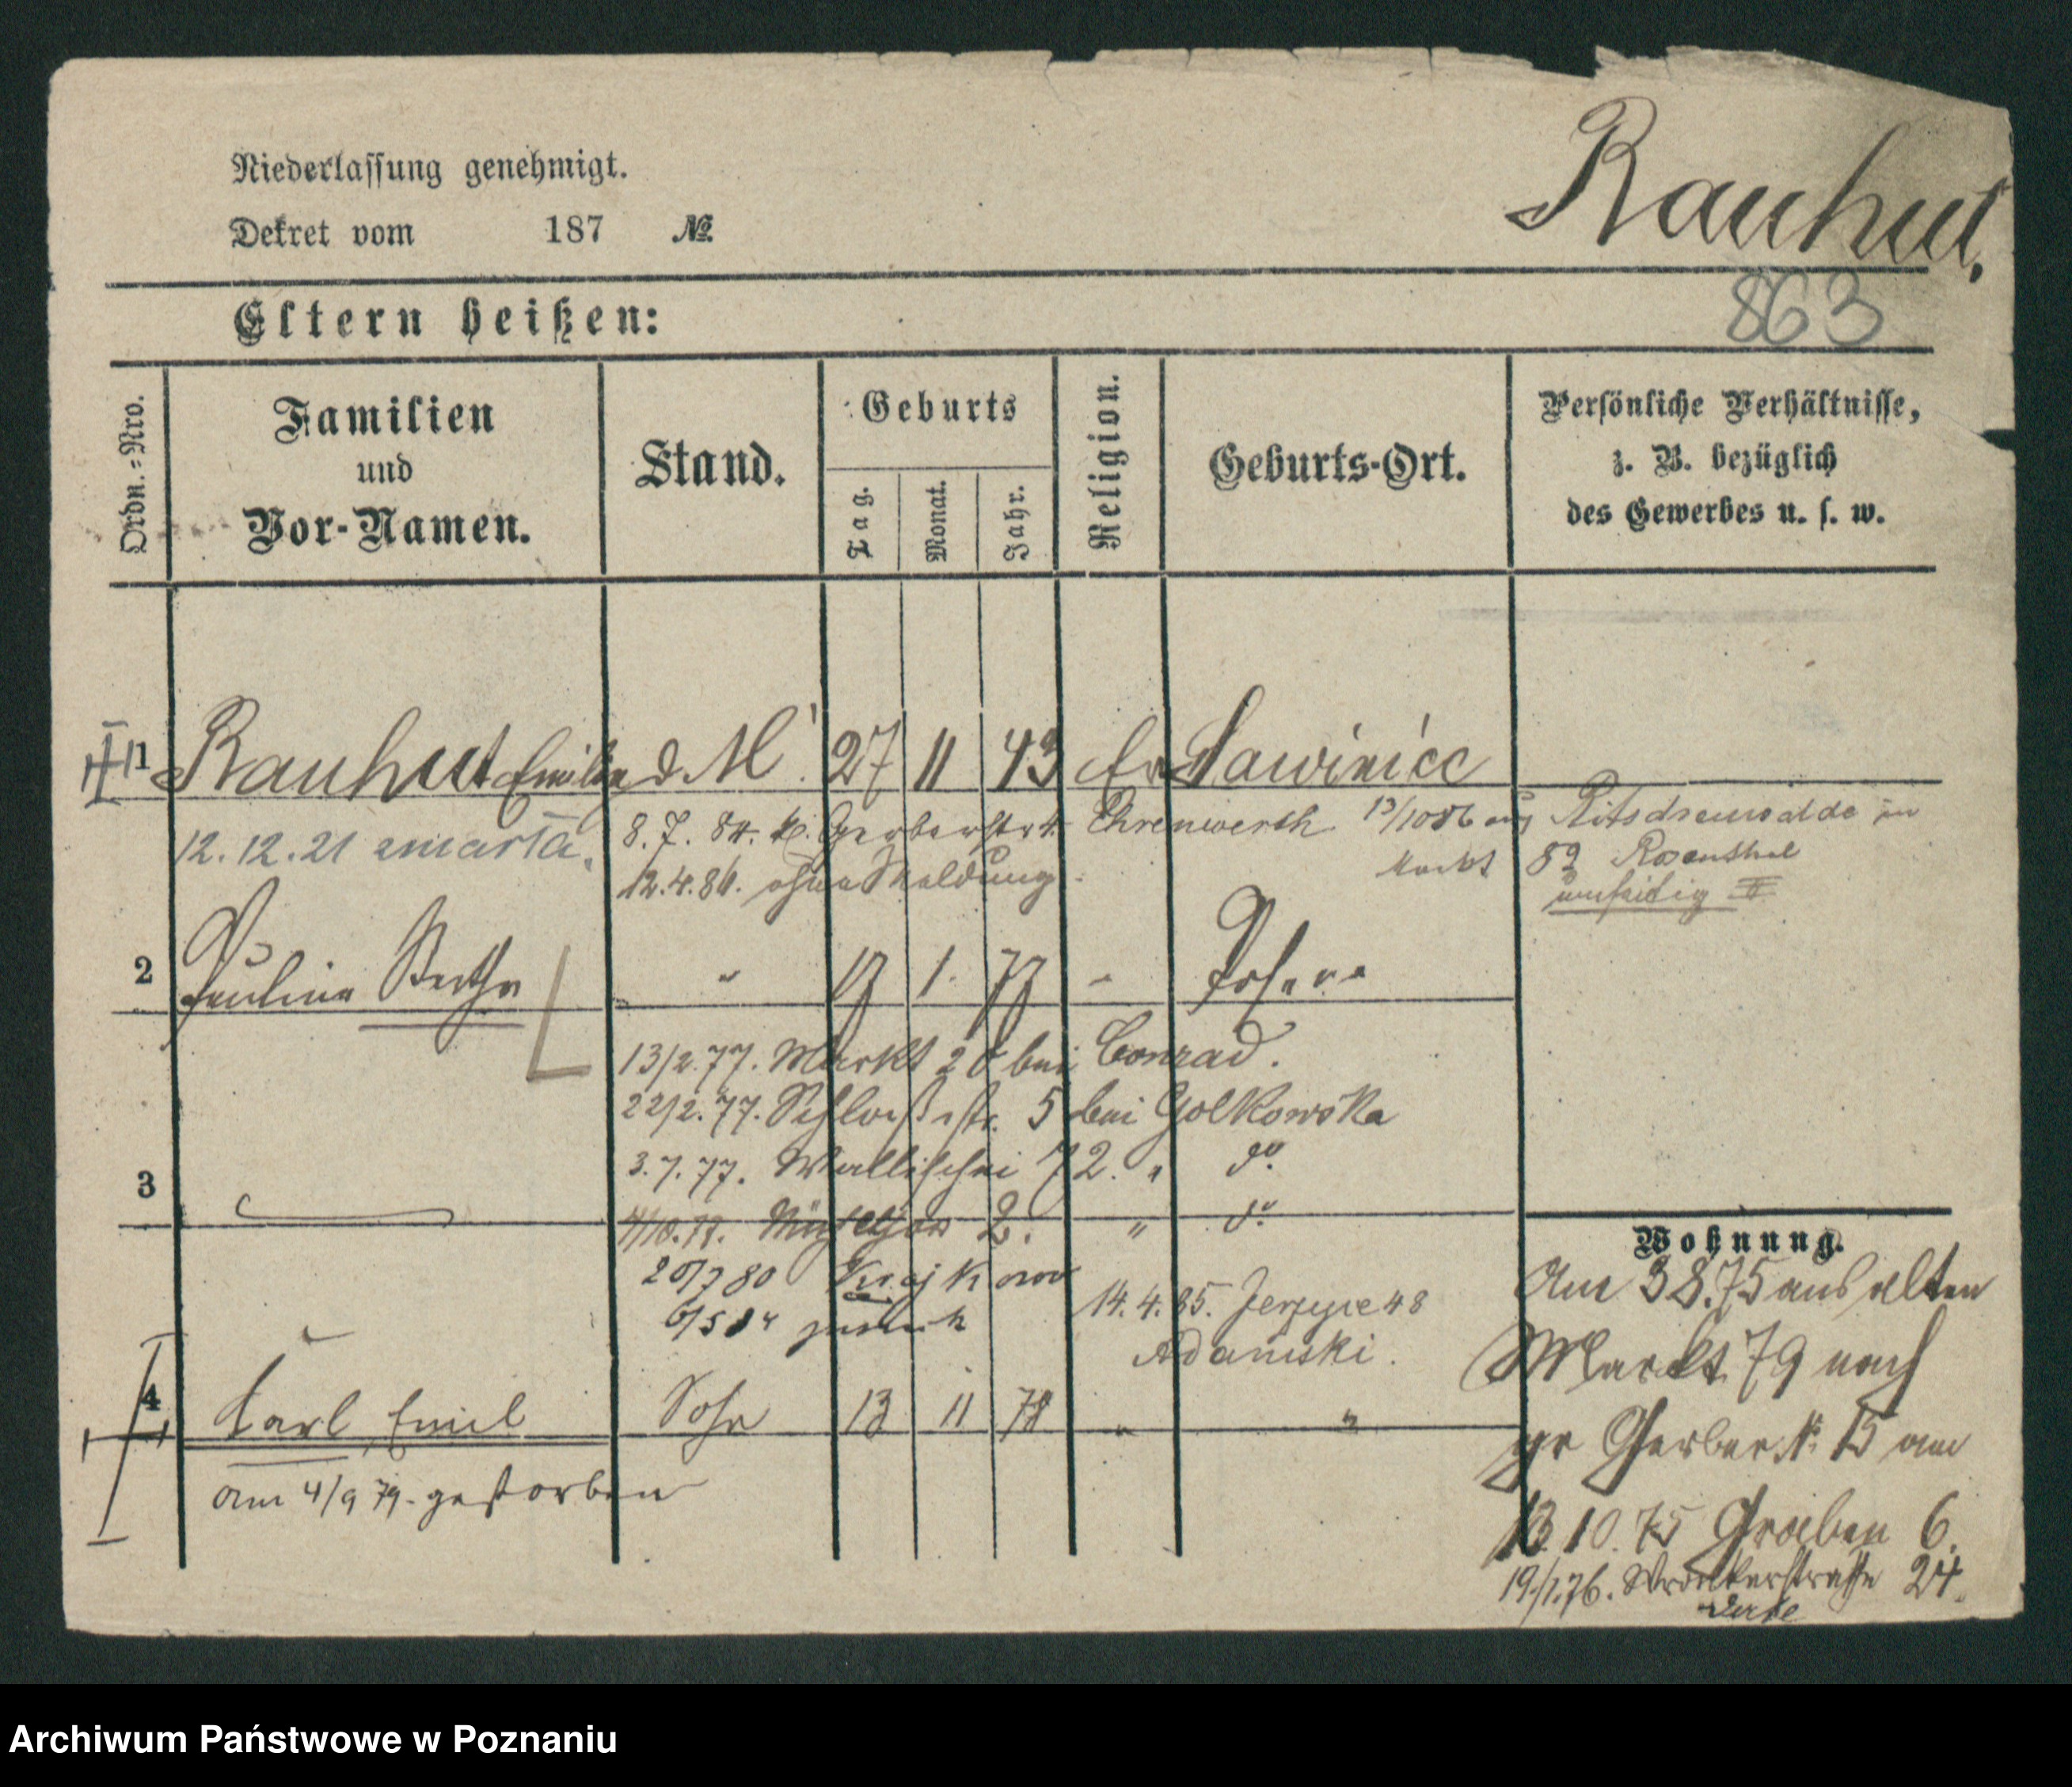 Rauhut.
Niederlassung genehmigt.
Dekret vom 187 №
863
Eltern heißen:
Ordn.-Nro.
Familien
und
Vor-Namen.
Stand.
Geburts
Tag.
Monat.
Jahr.
Religion.
Geburts-Ort.
Persönliche Verhältnisse,
z. B. bezüglich
des Gewerbes u. s. w.
1 Rauhut Emilie d. M. 27 11 43 Ev
12.12.21 zmarła.
8.7.84. kl. Gerberstr 4. Ehrenwerth
12.4.86. ohne Meldung
Markt 82 Rosenthal
2 Pauline Bertha " 17 1. 77 " Posen
13/2.77. Markt bei Conrad.
22/2.77. Schloßstr. 5 bei Golkowska
3.7.77. Wallischei 72. " do.
2. " do.
14.4.85. Jerzyce 48
Adamski.
3
4 Carl Emil Sohn 13 11 78 " "
am 4/9 79. gestorben
Wohnung.
Am 3 8.75 aus alten
Markt 79 nach
gr Gerber № 15 am
13.10.75 Graben 6.
19/1.76. Wronkerstraße 24.
Archiwum Państwowe w Poznaniu